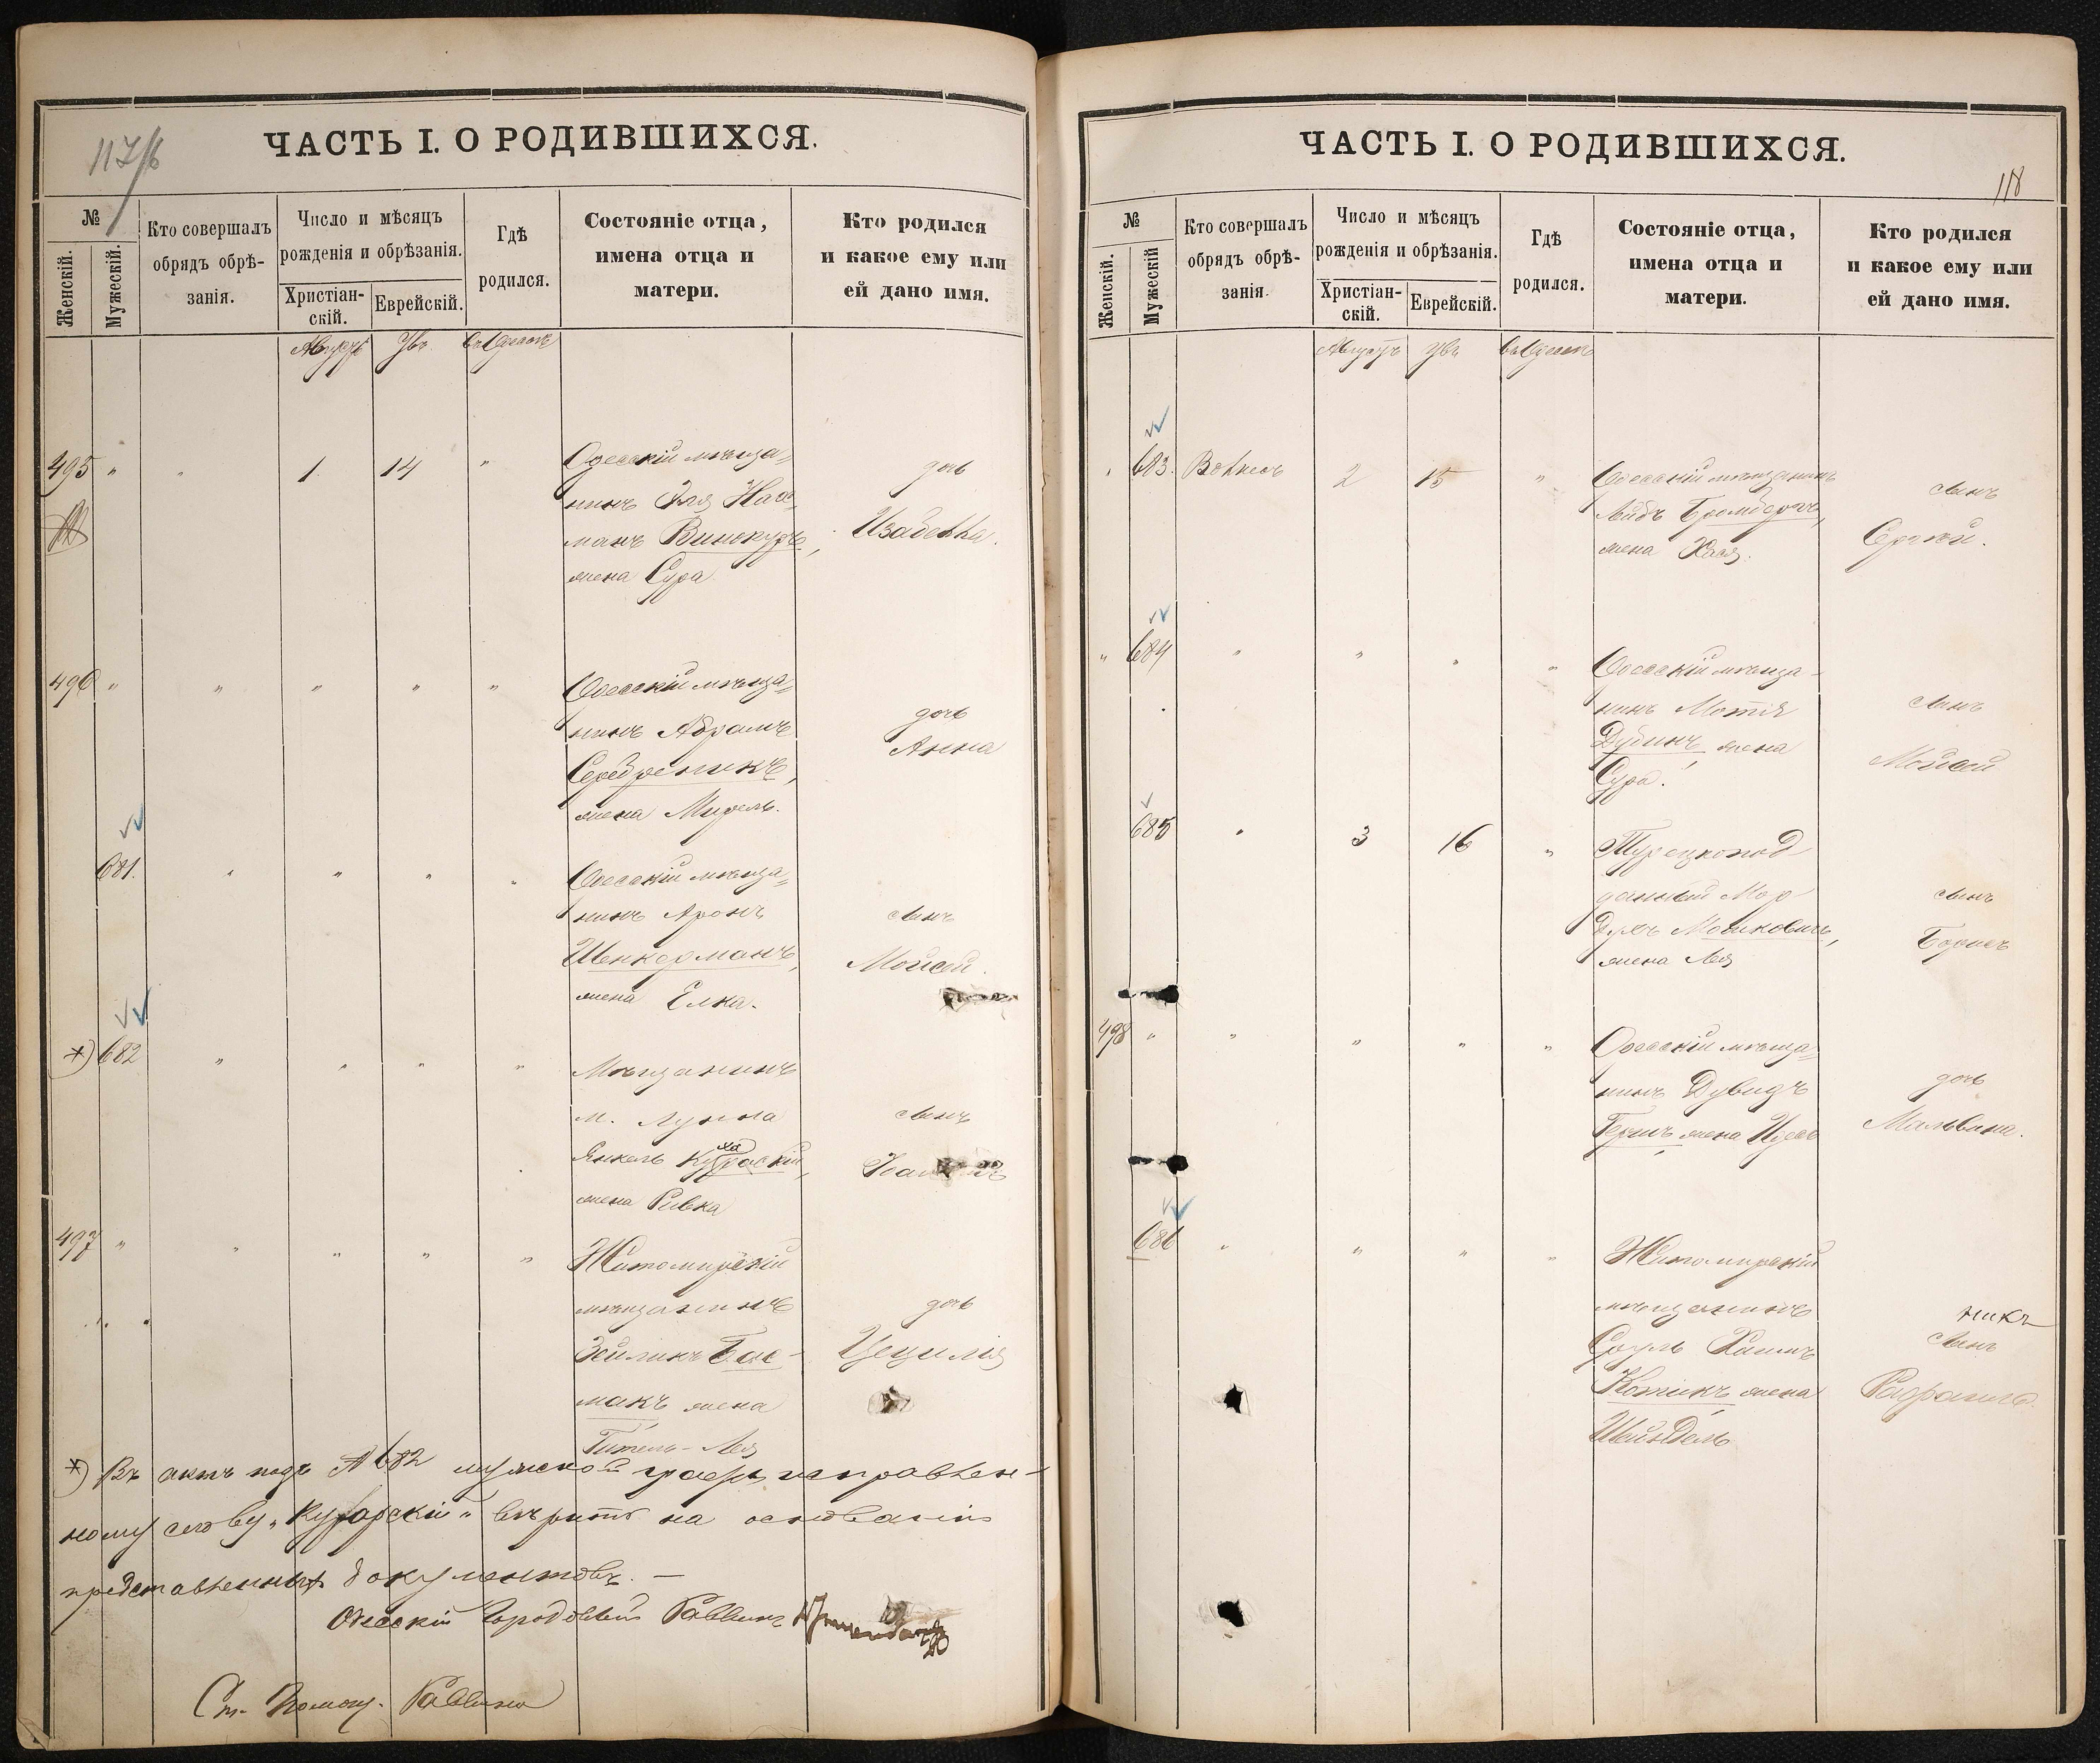 117/б
ЧАСТЬ I. О РОДИВШИХСЯ.
№
Женскій.
Мужескій.
Кто совершалъ
обрядъ обрѣ-
занія.
Число и мѣсяцъ
рожденія и обрѣзанія.
Христіан-
скій.
Еврейскій.
Гдѣ
родился.
Состояніе отца,
имена отца и
матери.
Кто родился
и какое ему или
ей дано имя.
Августъ
въ Одессѣ
495 " " 1 14 "
Одесскій мѣща=
нинъ Эля Нах=
манъ Винокуръ,
жена Сура
дочь
Изабелла.
496 " " " " "
Одесскій мѣща=
нинъ Абрамъ
Серебреникъ,
жена Мирель.
дочь
Анна
681. " " " "
Одесскій мѣща=
нинъ Аронъ
Шенкерманъ,
жена Елка.
сынъ
Мойсей.
*) 682 " " " "
Мѣщанинъ
м.
Янкель
жена Ривка
сынъ
497 " " " " "
Житомирскій
мѣщанинъ
Зейликъ Бас-
макъ жена
Гитель-Лея
дочь
Цецилія
*) Въ актѣ подъ № 682 мужской графы исправлен-
ному слову „Кухарскій" вѣрить на основаніи
представленныхъ документовъ. —
Одесскій Городовой Раввинъ
Ст. Помощ. Раввина
118
ЧАСТЬ I. О РОДИВШИХСЯ.
№
Женскій.
Мужескій
Кто совершалъ
обрядъ обрѣ-
занія.
Число и мѣсяцъ
рожденія и обрѣзанія.
Христіан-
скій.
Еврейскій.
Гдѣ
родился.
Состояніе отца,
имена отца и
матери.
Кто родился
и какое ему или
ей дано имя.
Августъ
въ Одессѣ
683. 2 15 "
Одесскій мѣщанинъ
Лейбъ Бромбергъ,
жена Хая.
сынъ
Сергѣй.
" 684 " " " "
Одесскій мѣща-
нинъ Мотія
Дубинъ, жена
Сура.
сынъ
Мойсей
685 " 3 16 "
Турецкопод-
данный Мор-
духъ Мошковичъ,
жена Лея
сынъ
Борисъ
498 " " " " "
Одесскій мѣща=
нинъ Дувидъ
жена
дочь
Мальвина.
686 " " " "
Житомирскій
мѣщанинъ
Сруль Хаимъ
Котикъ жена
Шейндель
сынъ